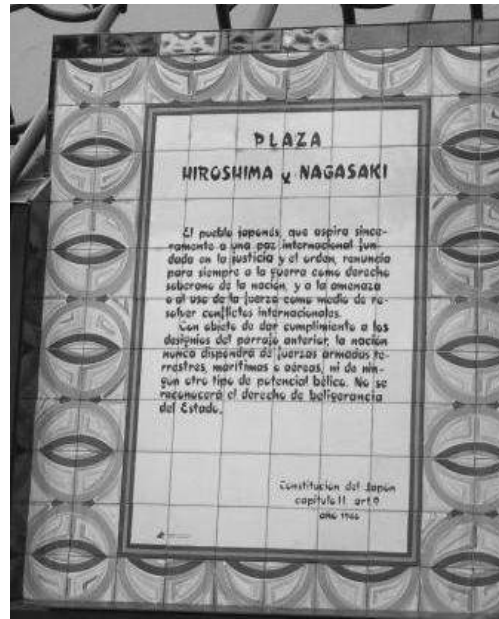 PLAZA
HIROSHIMA y NAGASAKI
El pueblo japonés, que aspira since-
ramente a una paz internacional fun-
dada en la justicia y el orden, renuncia
para siempre a la guerra como derecho
soberano de la nación, y a la amenaza
o al uso de la fuerza como medio de re-
solver conflictos internacionales.
Con objeto de dar cumplimiento a los
designios del párrafo anterior, la nación
nunca dispondrá de fuerzas armadas te-
rrestres, marítimas o aéreas, ni de nin-
gún otro tipo de potencial bélico. No se
reconocerá el derecho de beligerancia
del Estado.
Constitución del Japón
capítulo II art 9
año 1946